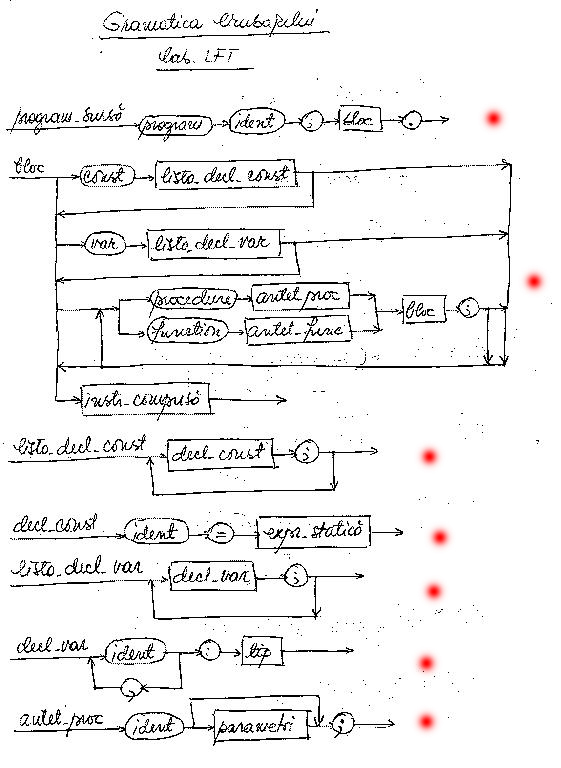 Gramatica limbajului
Lab. LFT
program_sursă program ident ; bloc .
bloc const listă_decl_const
var listă_decl_var
procedure antet_proc
bloc ;
function antet_func
instr_compusă
listă_decl_const decl_const ;
decl_const ident = expr_statică
listă_decl_var decl_var ;
decl_var ident : tip
,
antet_proc ident parametri ;